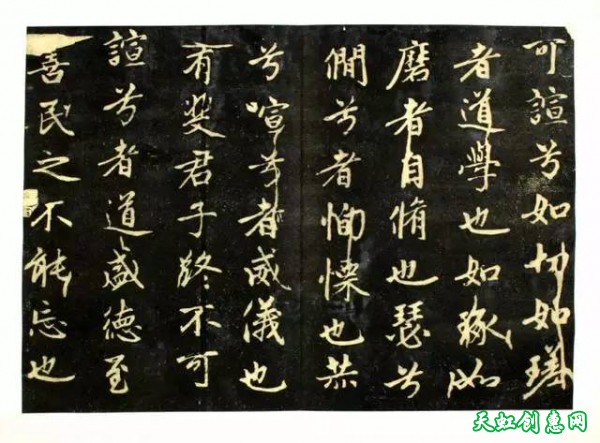 可諠兮如切如瑳
者道學也如琢如
磨者自脩也瑟兮
僩兮者恂慄也赫
兮喧兮者威儀也
有斐君子終不可
諠兮者道盛德至
善民之不能忘也
天虹创惠网